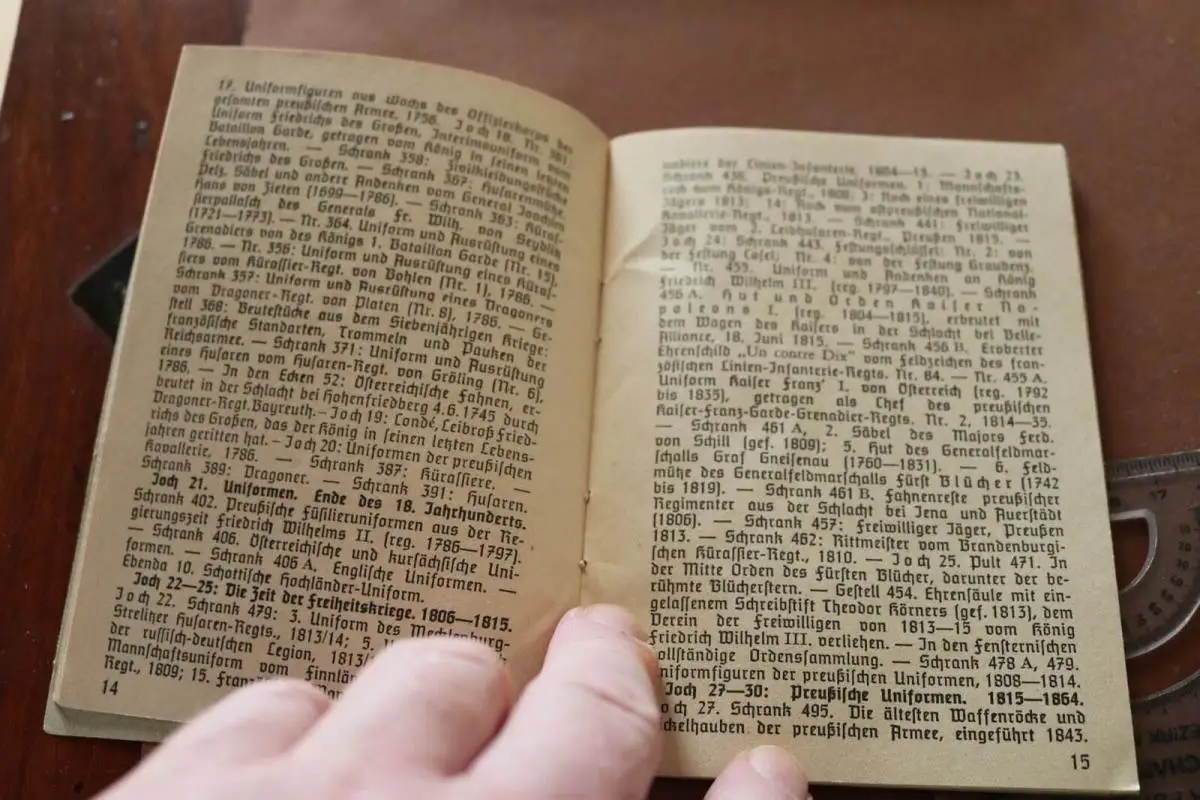 17. Uniformfiguren aus Wachs des Offizierkorps der
gesamten preußischen Armee, 1756. Joch 18. Nr. 361:
Uniform Friedrichs des Großen, Interimsuniform vom
Bataillon Garde, getragen vom König in seinen letzten
Lebensjahren. — Schrank 358: Zivilkleidungsstücke
Friedrichs des Großen. — Schrank 367: Husarenmütze,
Pelz, Säbel und andere Andenken vom General Joachim
Hans von Zieten (1699—1786). — Schrank 363: Küras-
sierpallasch des Generals Fr. Wilh. von Seydlitz
(1721—1773). — Nr. 364. Uniform und Ausrüstung eines
Grenadiers von des Königs 1. Bataillon Garde (Nr. 15),
1786. — Nr. 356: Uniform und Ausrüstung eines Küras-
siers vom Kürassier-Regt. von Bohlen (Nr. 1), 1786. —
Schrank 357: Uniform und Ausrüstung eines Dragoners
vom Dragoner-Regt. von Platen (Nr. 8), 1786. — Ge-
stell 368: Beutestücke aus dem Siebenjährigen Kriege:
französische Standarten, Trommeln und Pauken der
Reichsarmee. — Schrank 371: Uniform und Ausrüstung
eines Husaren vom Husaren-Regt. von Gröling (Nr. 6),
1786. — In den Ecken 52: Österreichische Fahnen, er-
beutet in der Schlacht bei Hohenfriedberg 4.6.1745 durch
Dragoner-Regt. Bayreuth. – Joch 19: Condé, Leibroß Fried-
richs des Großen, das der König in seinen letzten Lebens-
jahren geritten hat. – Joch 20: Uniformen der preußischen
Kavallerie, 1786. — Schrank 387: Kürassiere. —
Schrank 389: Dragoner. — Schrank 391: Husaren.
Joch 21. Uniformen. Ende des 18. Jahrhunderts.
Schrank 402. Preußische Füsilieruniformen aus der Re-
gierungszeit Friedrich Wilhelms II. (reg. 1786—1797).
— Schrank 406. Österreichische und kursächsische Uni-
formen. — Schrank 406 A. Englische Uniformen. —
Ebenda 10. Schottische Hochländer-Uniform.
Joch 22—25: Die Zeit der Freiheitskriege. 1806—1815.
Joch 22. Schrank 479: 3. Uniform des Mecklenburg-
Strelitzer Husaren-Regts., 1813/14; 5.
der russisch-deutschen Legion, 1813/
Mannschaftsuniform vom Finnlä
Regt., 1809; 15. Franz
14
der Linien-Infanterie, 1804—15. — Joch 23.
Schrank 436. Preußische Uniformen. 1: Mannschafts-
rock vom Königs-Regt., 1808; 3: Rock eines freiwilligen
Jägers 1813; 14: Rock vom ostpreußischen National-
Kavallerie-Regt., 1813. — Schrank 441: Freiwilliger
Jäger vom 2. Leibhusaren-Regt., Preußen 1815. —
Joch 24: Schrank 443. Festungsschlüssel: Nr. 2: von
der Festung Cosel; Nr. 4: von der Festung Graudenz.
— Nr. 455. Uniform und Andenken an König
Friedrich Wilhelm III. (reg. 1797—1840). — Schrank
456 A. Hut und Orden Kaiser Na-
poleons I. (reg. 1804—1815), erbeutet mit
dem Wagen des Kaisers in der Schlacht bei Belle-
Alliance, 18. Juni 1815. — Schrank 456 B. Eroberter
Ehrenschild „Un contre Dix“ vom Feldzeichen des fran-
zösischen Linien-Infanterie-Regts. Nr. 84. — Nr. 455 A.
Uniform Kaiser Franz' I. von Österreich (reg. 1792
bis 1835), getragen als Chef des preußischen
Kaiser-Franz-Garde-Grenadier-Regts. Nr. 2, 1814—35.
— Schrank 461 A, 2. Säbel des Majors Ferd.
von Schill (gef. 1809); 5. Hut des Generalfeldmar-
schalls Graf Gneisenau (1760—1831). — 6. Feld-
mütze des Generalfeldmarschalls Fürst Blücher (1742
bis 1819). — Schrank 461 B. Fahnenreste preußischer
Regimenter aus der Schlacht bei Jena und Auerstädt
(1806). — Schrank 457: Freiwilliger Jäger, Preußen
1813. — Schrank 462: Rittmeister vom Brandenburgi-
schen Kürassier-Regt., 1810. — Joch 25. Pult 471. In
der Mitte Orden des Fürsten Blücher, darunter der be-
rühmte Blücherstern. — Gestell 454. Ehrensäule mit ein-
gelassenem Schreibstift Theodor Körners (gef. 1813), dem
Verein der Freiwilligen von 1813—15 vom König
Friedrich Wilhelm III. verliehen. — In den Fensternischen
ollständige Ordenssammlung. — Schrank 478 A, 479.
niformfiguren der preußischen Uniformen, 1808—1814.
Joch 27—30: Preußische Uniformen. 1815—1864.
och 27. Schrank 495. Die ältesten Waffenröcke und
ickelhauben der preußischen Armee, eingeführt 1843.
15